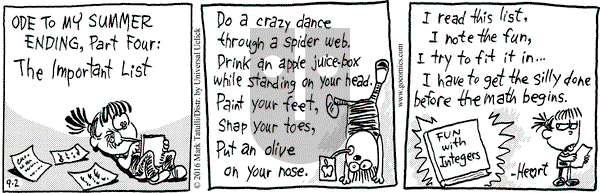 ODE TO MY SUMMER
ENDING, Part Four:
The Important List
9-2
© 2016 Mark Tatulli/Distr. by Universal Uclick
Do a crazy dance
through a spider web.
Drink an apple juice-box
while standing on your head.
Paint your feet,
Snap your toes,
Put an olive
on your nose.
www.gocomics.com
I read this list,
I note the fun,
I try to fit it in...
I have to get the silly done
before the math begins.
FUN
with
Integers
-Heart